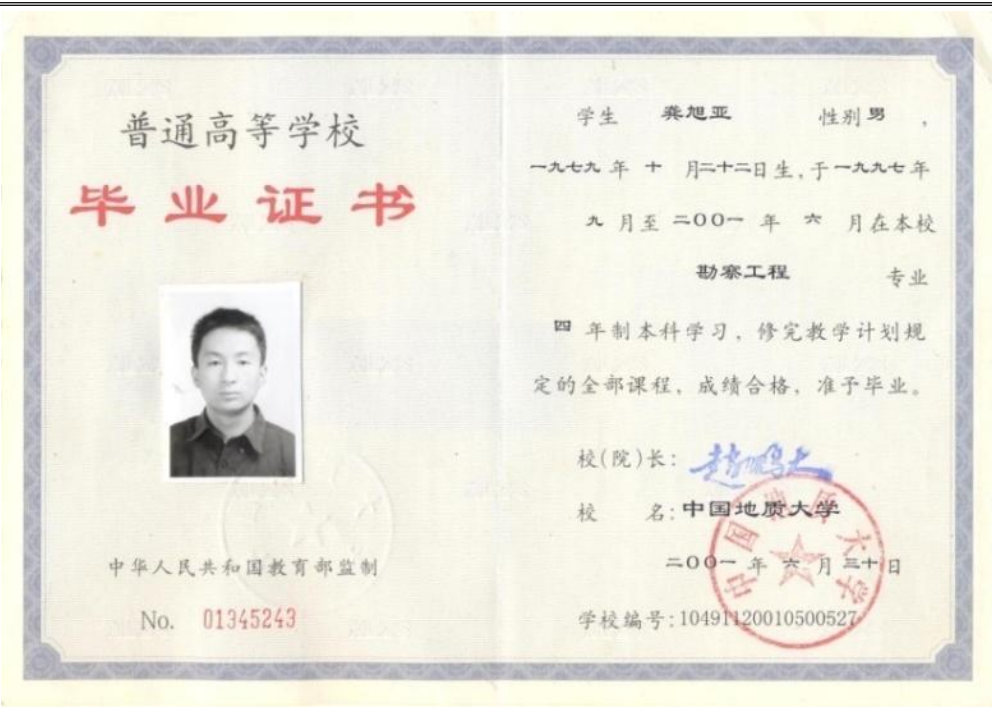 普通高等学校
毕业证书
中华人民共和国教育部监制
No. 01345243
学生 龚旭亚 性别 男 ,
一九七九 年 十 月二十二日生,于一九九七年
九 月至 二〇〇一 年 六 月在本校
勘察工程 专业
四 年制本科学习，修完教学计划规
定的全部课程，成绩合格，准予毕业。
校(院)长: 赵鹏大
校 名: 中国地质大学
二〇〇一 年 六 月 三十 日
学校编号: 10491120010500527
中国地质大学